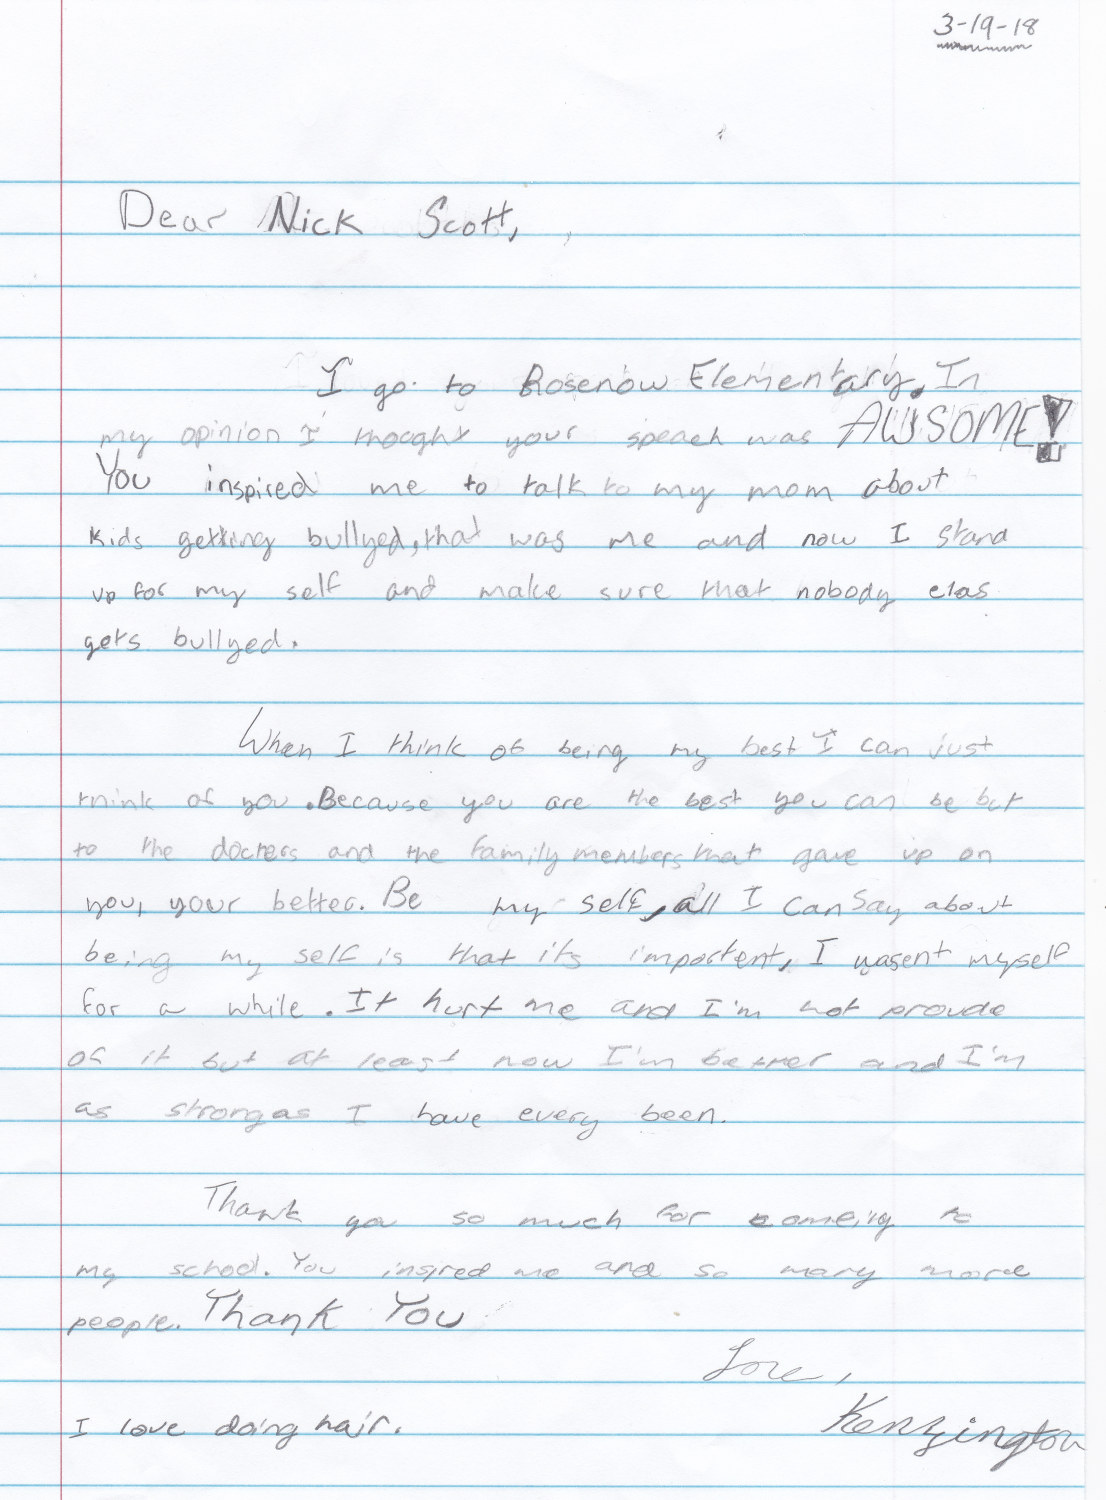 3-19-18
Dear Nick Scott,
I go to Rosenow Elementary. In
my opinion I thought your speach was AWSOME!
You inspired me to talk to my mom about
kids getting bullyed, that was me and now I stand
up for my self and make sure that nobody elas
gets bullyed.
When I think of being my best I can just
think of you. Because you are the best you can be but
to the docters and the family members that gave up on
you, your better. Be my self, all I can say about
being my self is that its important, I wasent myself
for a while. It hurt me and I'm not proude
of it but at least now I'm better and I'm
as strong as I have every been.
Thank you so much for comeing to
my school. You inspred me and so many more
people. Thank You
Love,
I love doing hair.
Kenzington